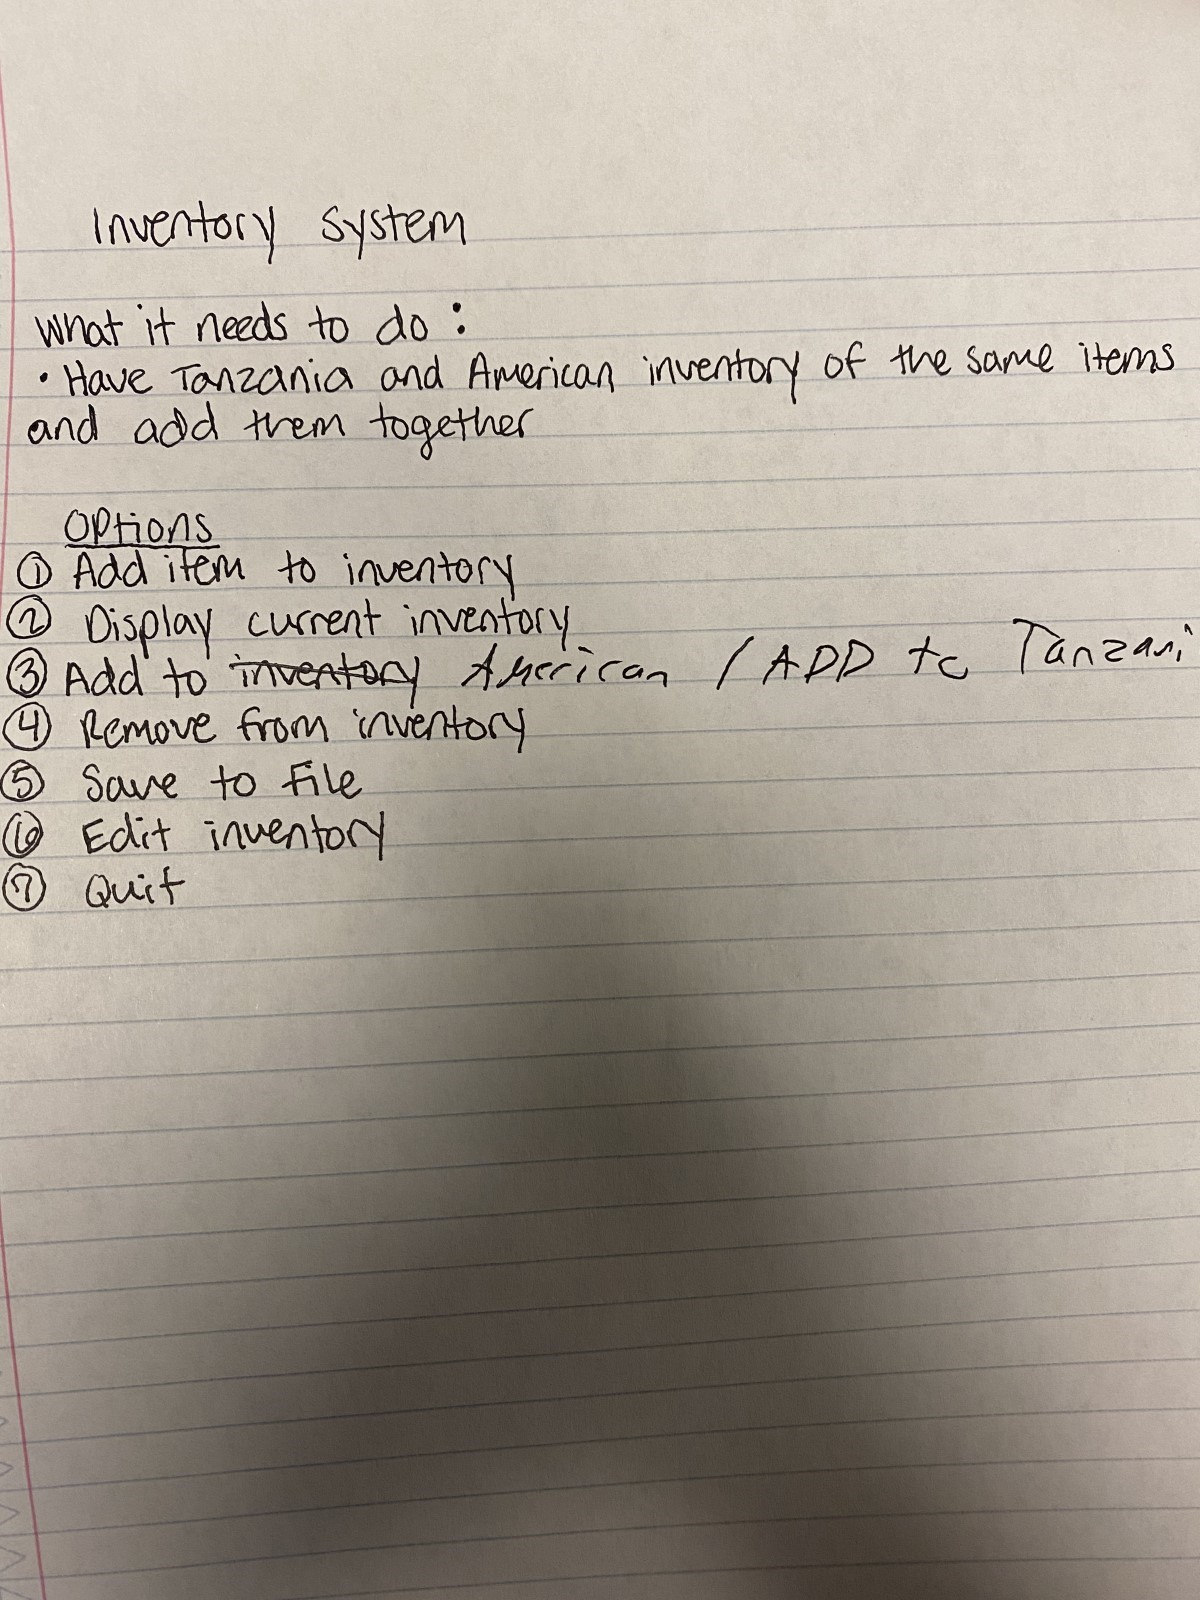 Inventory system
What it needs to do :
• Have Tanzania and American inventory of the same items
and add them together
Options
① Add item to inventory
② Display current inventory
③ Add to inventory American / ADD to Tanzani
④ Remove from inventory
⑤ Save to file
⑥ Edit inventory
⑦ Quit